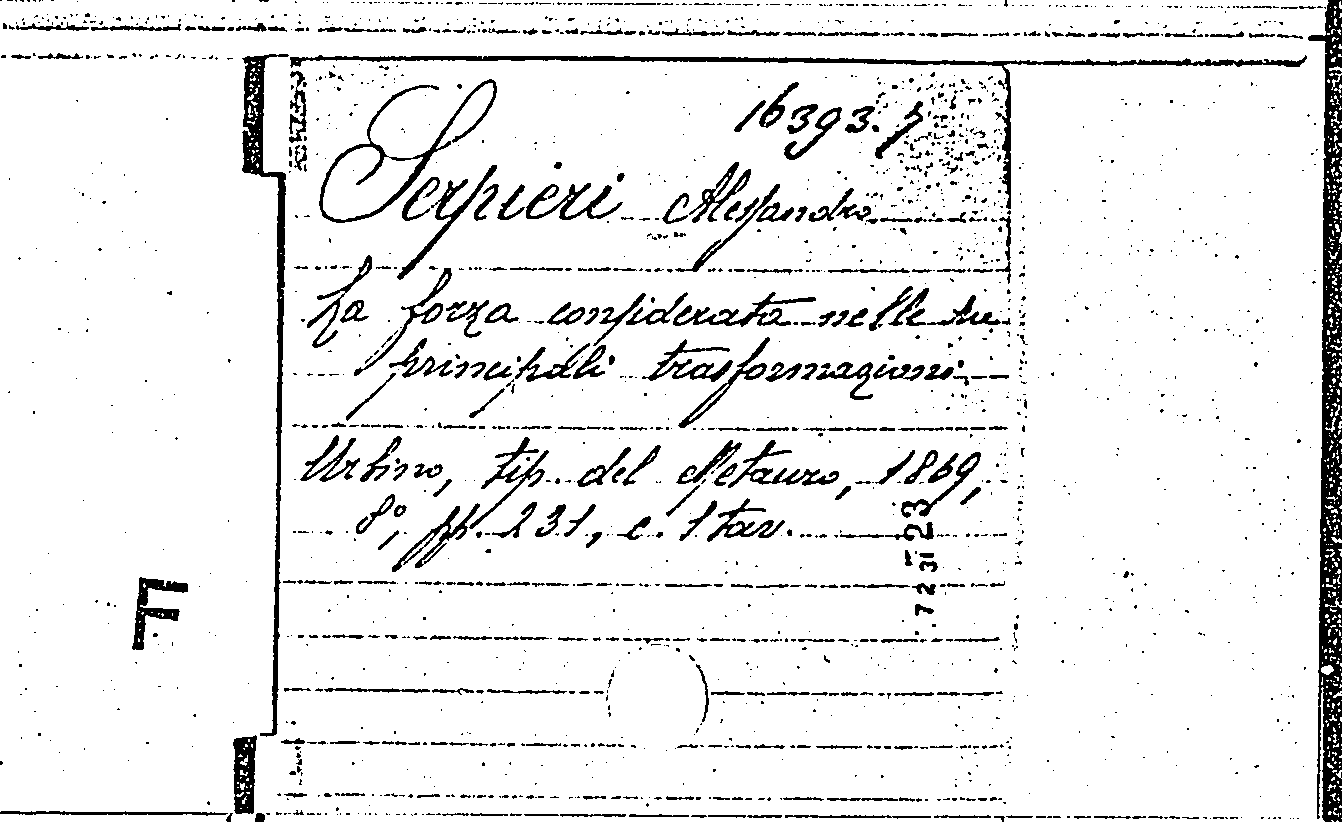 16393.7
Serpieri Alessandro
La forza considerata nelle sue
principali trasformazioni.
Urbino, tip. del Metauro, 1869,
8°, pp. 231, c. 1 tav.
F